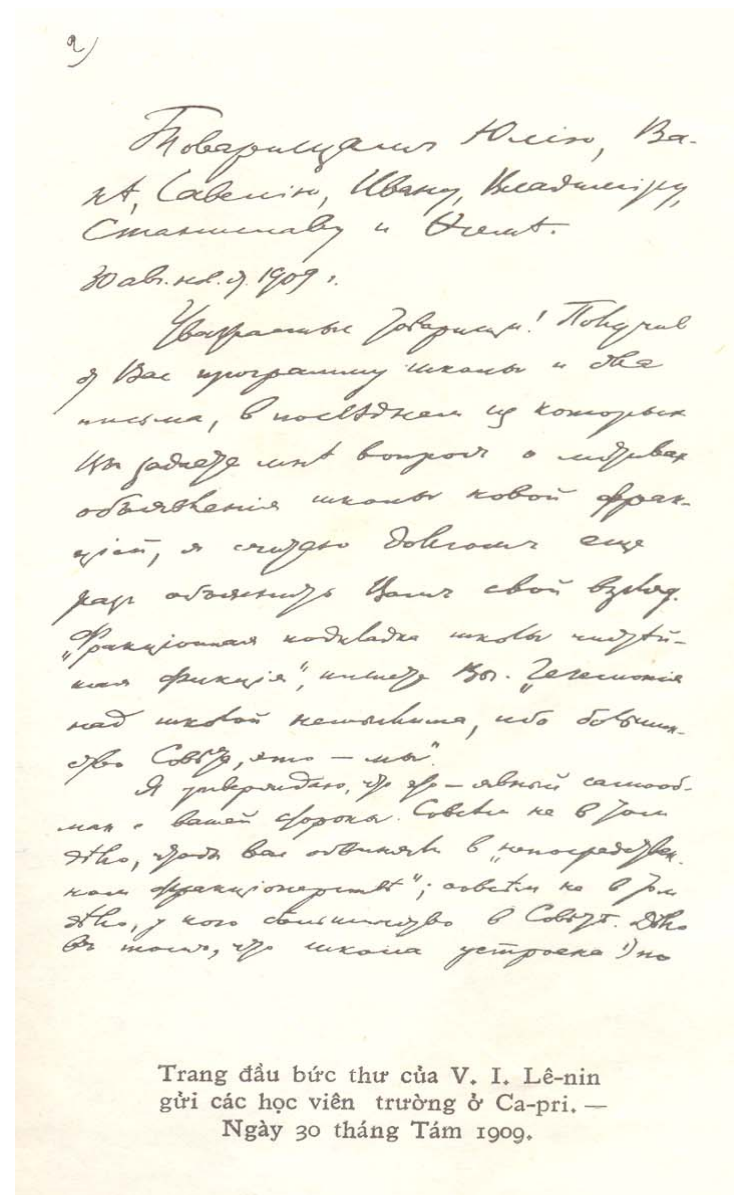 2)
Товарищамъ Юлію, Ва-
нѣ, Савелію, Ивану, Владиміру,
Станиславу и Ѳомѣ.
30 авг. нов. ст. 1909 г.
Уважаемые товарищи! Получив
от Вас программу школы и два
письма, в последнем из которых
Вы задаете мнѣ вопрос о мотивах
объявленія школы новой фрак-
ціей, я считаю долгомъ еще
раз объяснить Вамъ свой взгляд.
„Фракціонная подкладка школы чистѣй-
шая фикція", пишете Вы. „Гегемонія
над школой немыслима, ибо большин-
ство Совѣта, это — мы".
Я утверждаю, что это — явный самооб-
ман с вашей стороны. Совсѣм не в том
дѣло, чтобы вас обвинять в „непосредствен-
ном фракціонерствѣ"; совсѣм не в том
дѣло, у кого большинство в Совѣтѣ. Дѣло
въ томъ, что школа устроена 1) по
Trang đầu bức thư của V. I. Lê-nin
gửi các học viên trường ở Ca-pri. —
Ngày 30 tháng Tám 1909.